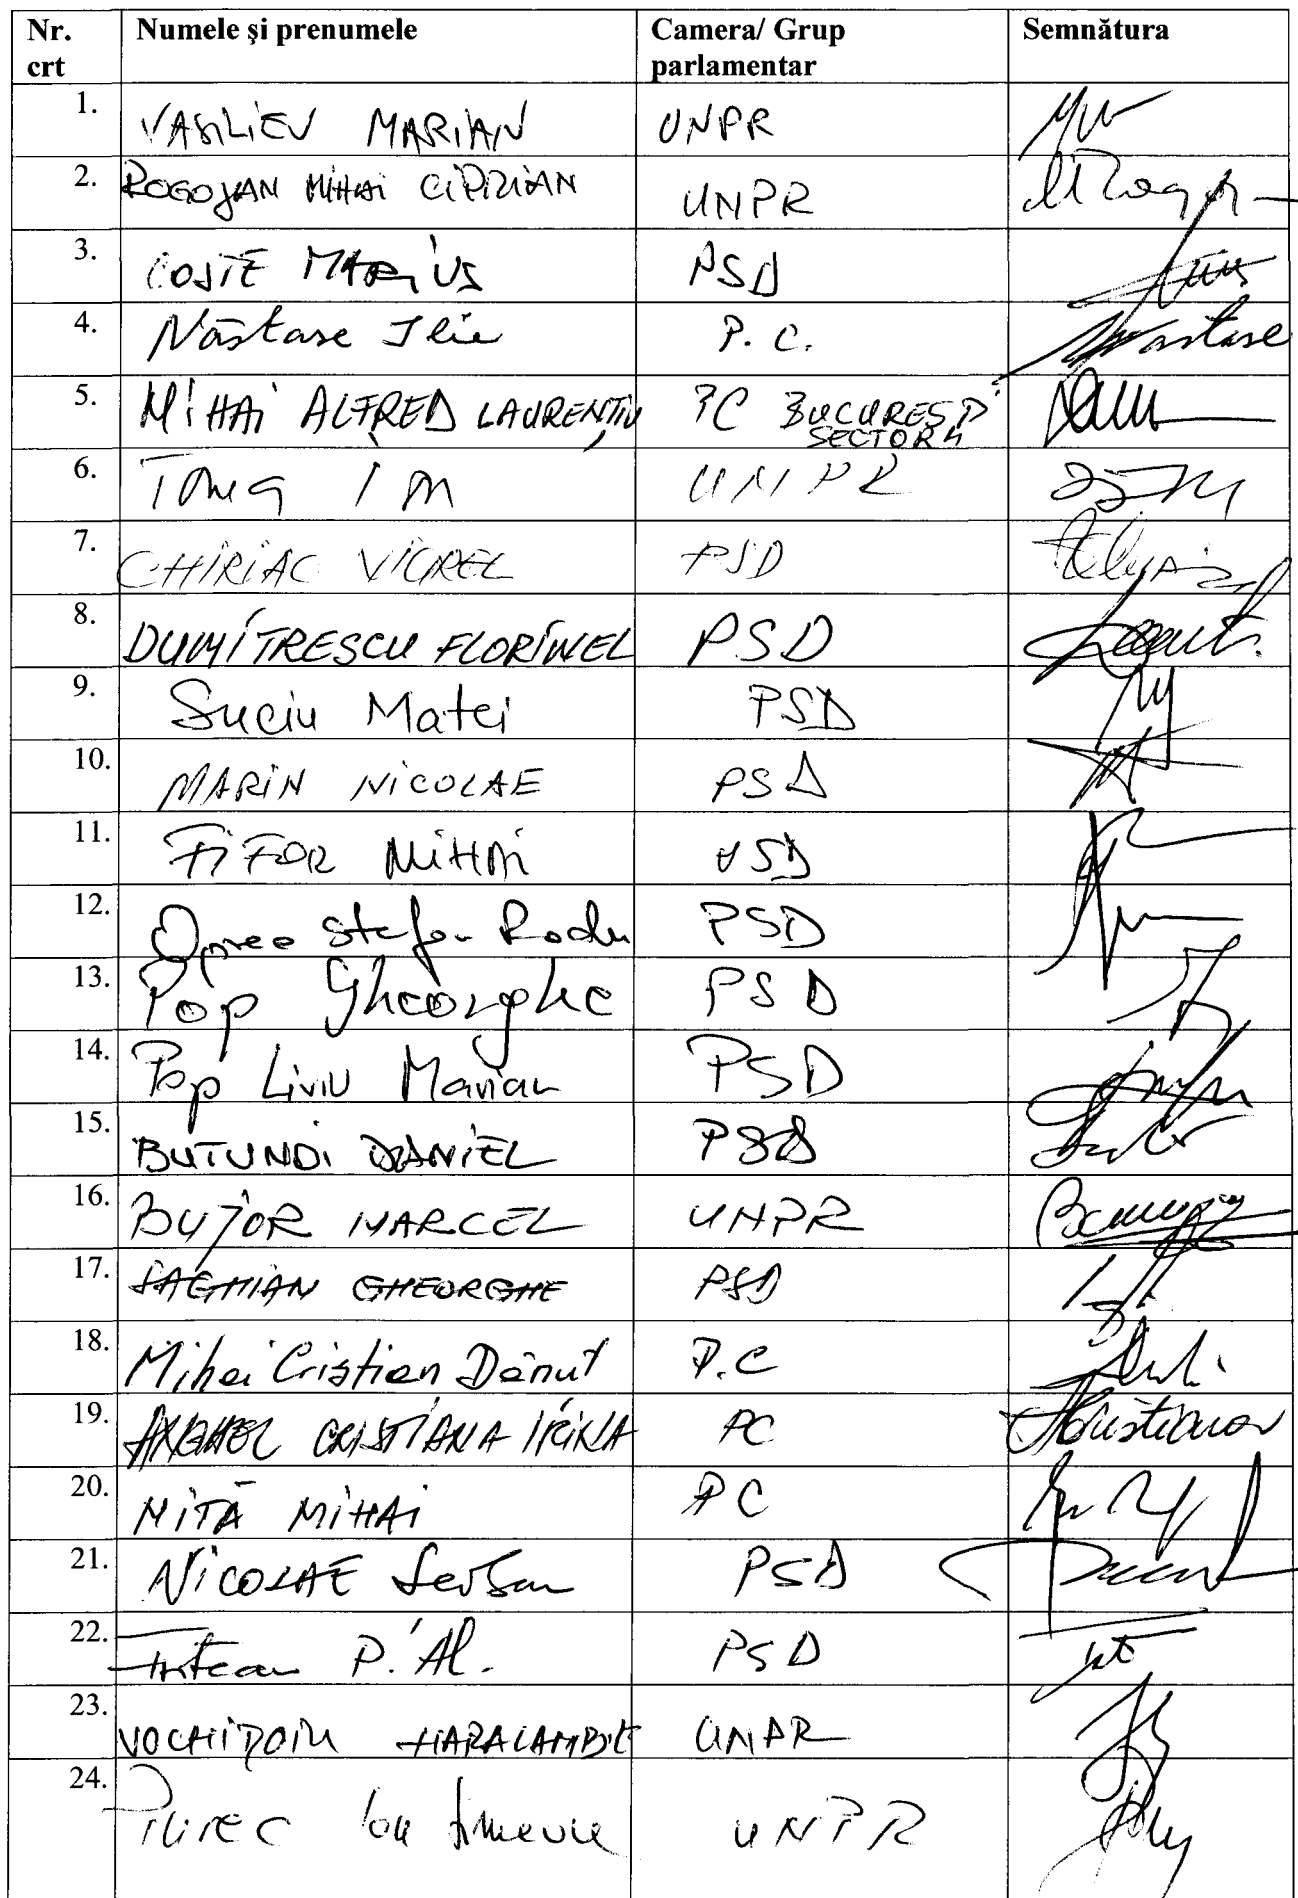 Nr. crt Numele și prenumele Camera/ Grup parlamentar Semnătura
1. VASILIEV MARIAN UNPR
2. ROGOJAN MIHAI CIPRIAN UNPR
3. COSTE MARIUS PSD
4. Năstase Ilie P.C. Nastase
5. MIHAI ALFRED LAURENȚIU PC BUCUREȘTI SECTOR 4
6. Toma Ion UNPR
7. CHIRIAC VIOREL PSD
8. DUMITRESCU FLORINEL PSD
9. Suciu Matei PSD
10. MARIN NICOLAE PSD
11. FIFOR MIHAI PSD
12. Oprea Stefan Radu PSD
13. Pop Gheorghe PSD
14. Pop Liviu Marian PSD
15. BUTUNOI DANIEL PSD
16. BUJOR MARCEL UNPR
17. SAGHIAN GHEORGHE PSD
18. Mihai Cristian Dănuț P.C
19. ANGHEL CRISTIANA IRINA PC
20. MITĂ MIHAI PC
21. NICOLAE Serban PSD
22. P. Al. PSD
23. VOCHIȚOIU HARALAMBIE UNPR
24. UNPR